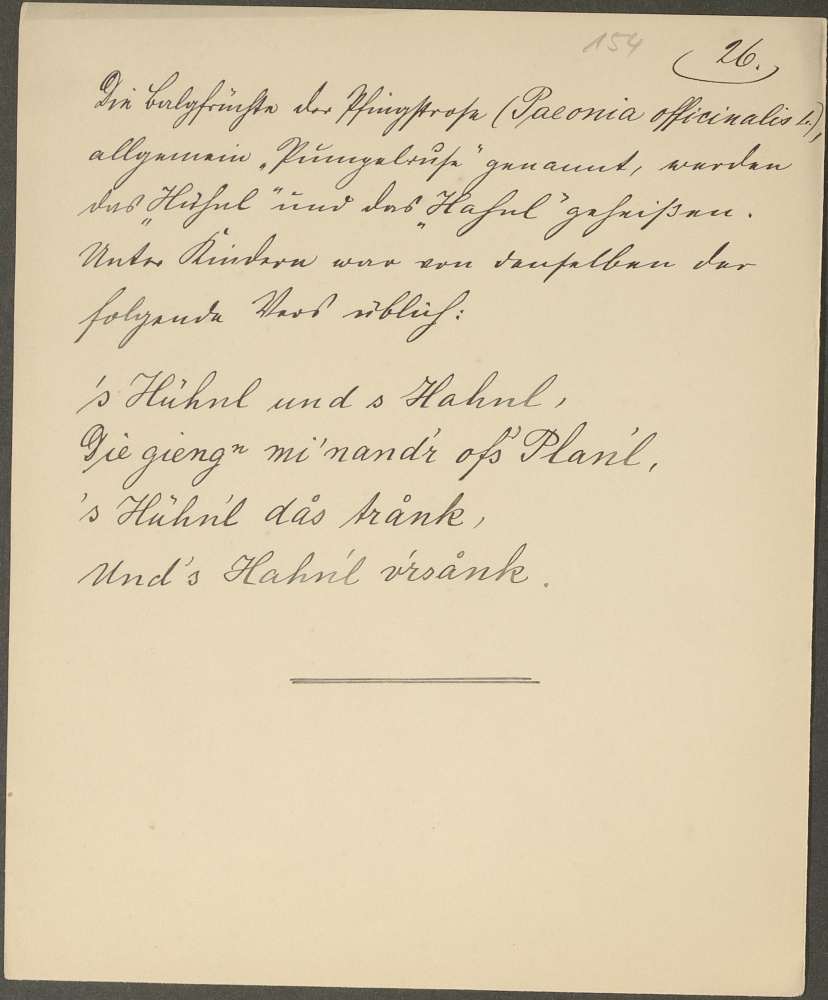 154
26.
Die Balgfrüchte der Pfingstrose (Paeonia officinalis L.),
allgemein „Pumpelruse" genannt, werden
das „Hühnl" und das „Hahnl" geheißen.
Unter Kindern war von denselben der
folgende Vers üblich:
's Hühnl und s Hahnl,
Die giengn mi'nand'r ofs Plan'l,
's Hühn'l dås trånk,
Und's Hahn'l v'rsånk.